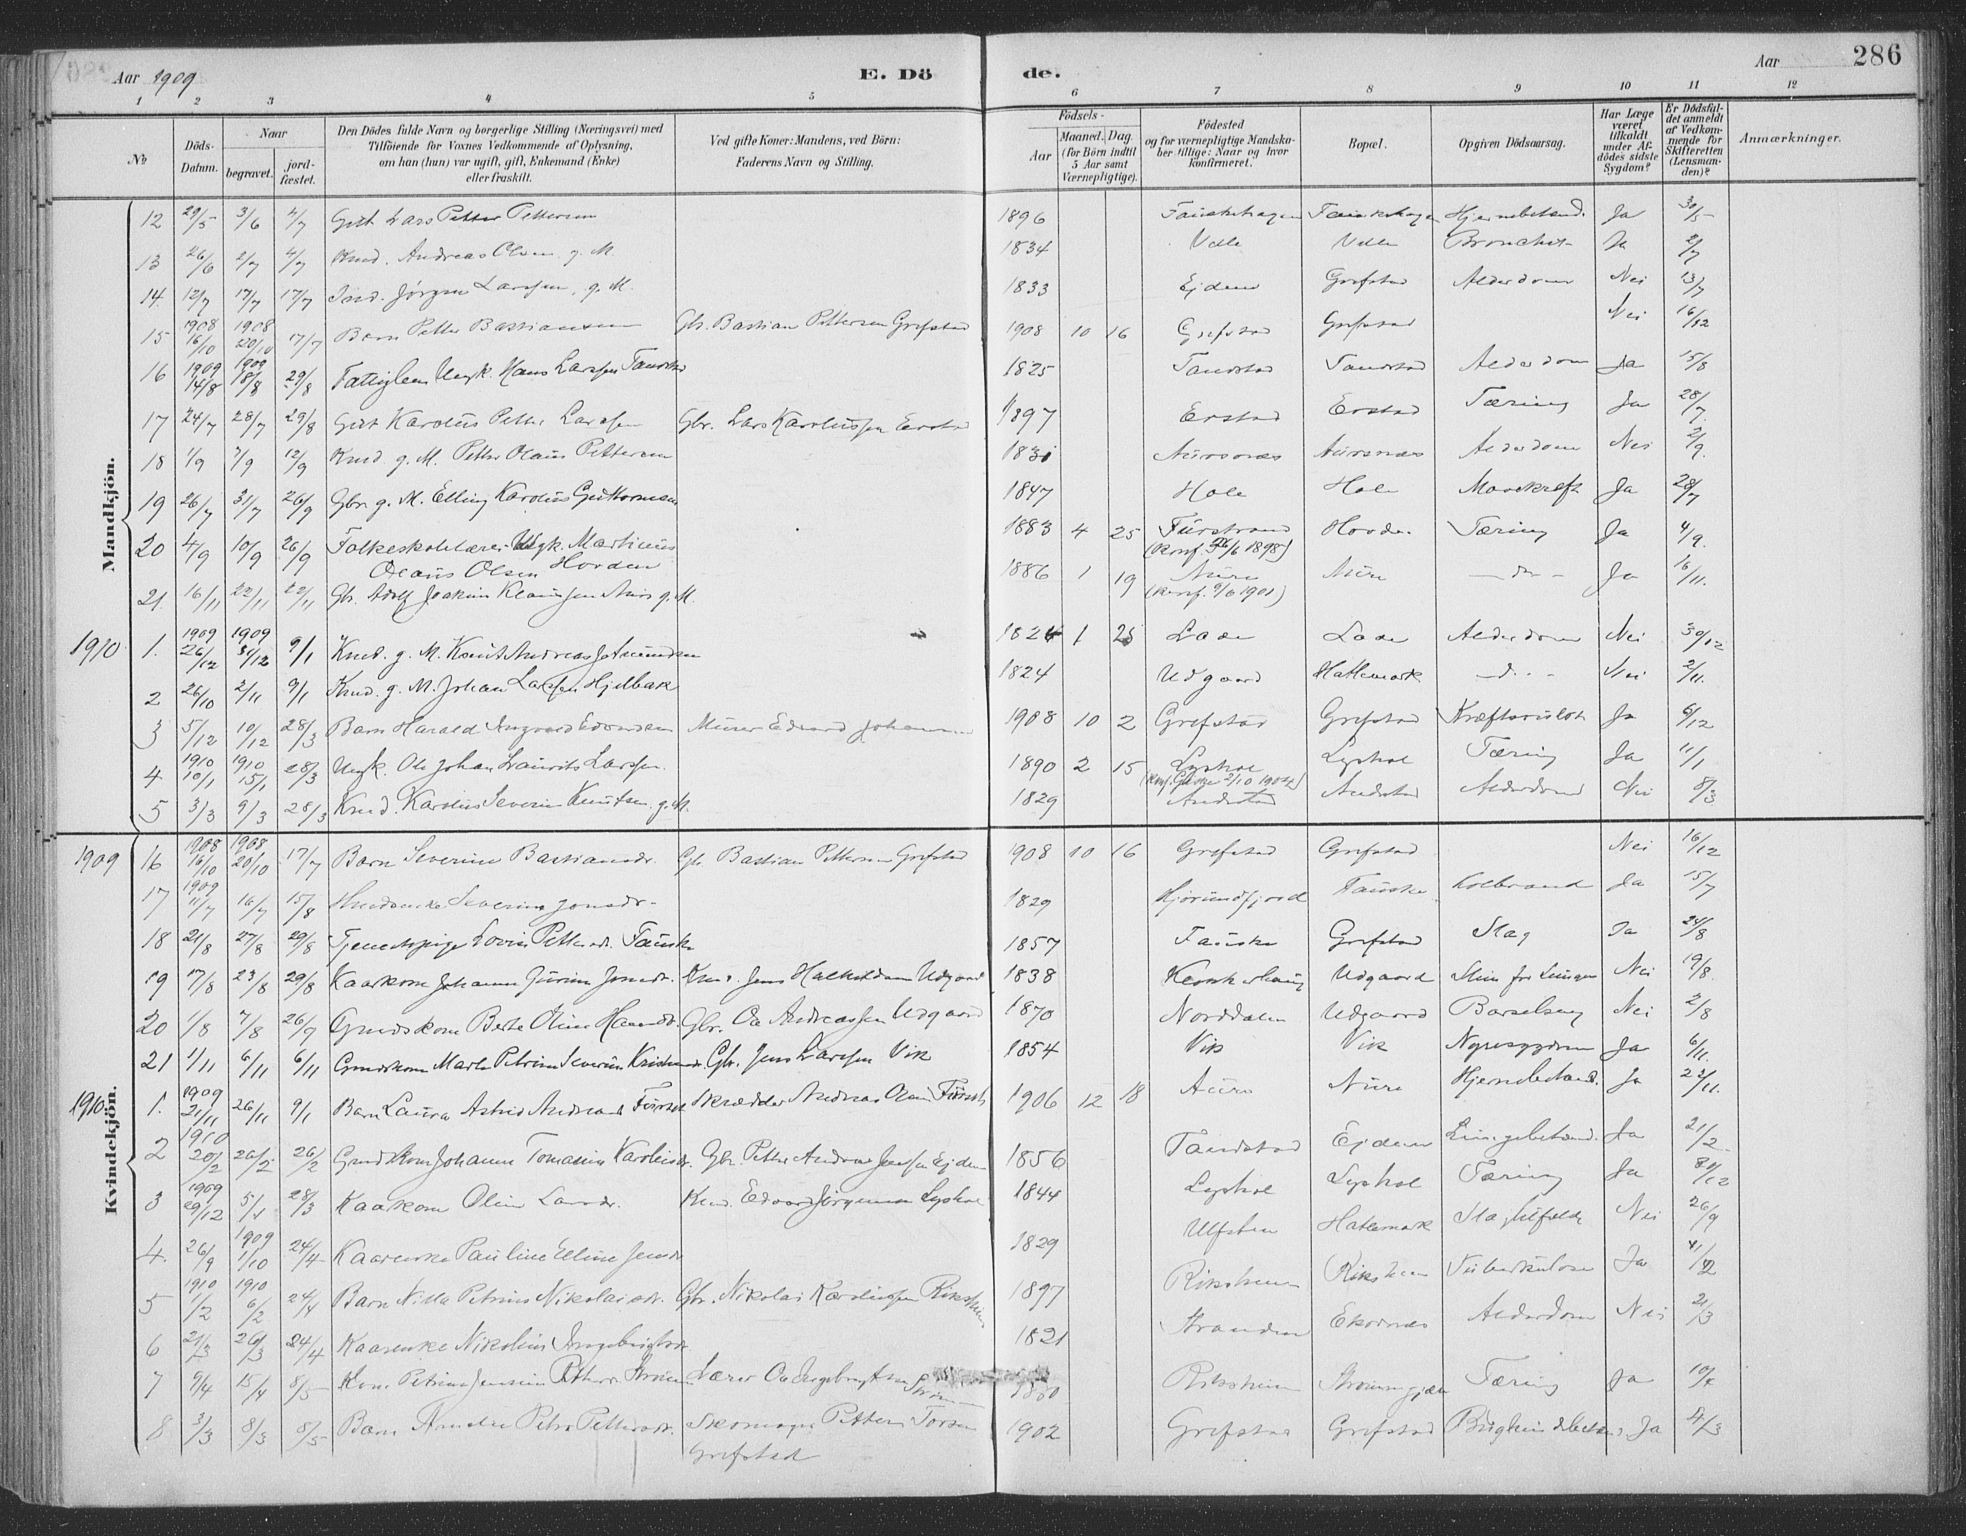 Aar 1909
E. Döde.
Aar
286
1 2 3 4 5 6 7 8 9 10 11 12
No
Döds-Datum.
Naar
begravet.
jordfæstet.
Den Dödes fulde Navn og borgerlige Stilling (Næringsvei) med
Tilföiende for Voxnes Vedkommende af Oplysning,
om han (hun) var ugift, gift, Enkemand (Enke)
eller fraskilt.
Ved gifte Koner: Mandens, ved Börn:
Faderens Navn og Stilling.
Födsels-
Aar
Maaned. Dag.
(for Börn indtil
5 Aar samt
Værnepligtige).
Födested
og for værnepligtige Mandska-
ber tillige: Naar og hvor
konfirmeret.
Bopæl.
Opgiven Dödsaarsag.
Har Læge
været
tilkaldt
under Af-
dödes sidste
Sygdom?
Er Dödsfal-
det anmeldt
af Vedkom-
mende for
Skifteretten
(Lensman-
den)?
Anmærkninger.
Mandkjön.
12 29/5 3/6 4/7 Gut Lars Petter Pettersen 1896 Hjernebetænd. Ja 30/5
13 26/6 2/7 4/7 Knud Andreas Olsen g. M. 1834 Velle Velle Bronchit Ja 2/7
14 12/7 17/7 17/7 Jørgen Larssen, g. M. 1833 Ejdem Grefstad Alderdom Nei 13/7
15 1908 16/10 1908 20/10 17/7 Barn Petter Bastiansen Gbr. Bastian Pettersen Grefstad 1908 10 16 Grefstad Grefstad Nei 16/12
16 1909 14/8 1909 18/8 29/8 Fattiglem Ungk. Hans Larssen Tandstad 1825 Tandstad Tandstad Alderdom Ja 15/8
17 24/7 28/7 29/8 Gut Karolus Petter Larssen Gbr. Lars Karolussen Erstad 1897 Erstad Erstad Tæring Ja 28/7
18 1/9 7/9 12/9 Knud g. M. Petter Olaus Pettersen 1831 Aursnæs Aursnæs Alderdom Nei 2/9
19 26/7 31/7 26/9 Gbr g. M. Elling Karolus Guttormsen 1847 Hole Hole Mavekræft Ja 28/7
20 4/9 10/9 26/9 Folkeskolelærer Ungk. Martinus 1883 4 25 Furstrand Hovde Tæring Ja 4/9
Olaus Olsen Hovden (Konf. /6 1898)
21. 16/11 22/11 22/11 Gb. Adolf Joakim Klausen Aure g. M. 1886 1 19 Aure Aure do Ja 16/11
(Konf. 9/6 1901)
1910
1. 1909 26/12 1909 31/12 9/1 Knud. g. M. Knut Andreas 1824 1 25 Lade Lade Alderdom Nei 30/12
2 26/10 2/11 9/1 Knud. g. M. Johan Larssen Hjelbak 1824 Udgaard Hatlemark do Nei 2/11
3 5/12 10/12 28/3 Barn Harald Ingvald Edvardsen Murer Edvard Johansen 1908 10 2 Grefstad Grefstad Ja 6/12
4 1910 10/1 1910 15/1 28/3 Ungk. Ole Johan Laurits Larssen. 1890 2 15 Lyshol Lyshol Tæring Ja 11/1
(Konf. 2/10 1904)
5 3/3 9/3 28/3 Knud. Karolus Severin Knutsen g. M. 1829 Andestad Andestad Alderdom Nei 8/3
Kvindekjön.
1909
16 1908 16/10 1908 20/10 17/7 Barn Severine Bastiansdr. Gbr Bastian Pettersen Grefstad 1908 10 16 Grefstad Grefstad Nei 16/12
17 1909 11/7 16/7 15/8 Severine Jonsdr. 1829 Hjørundfjord Fauske Kolbrand Ja 15/7
18 21/8 27/8 29/8 Tjenestepige Lovise Pettersdr. Fauske 1857 Fauske Grefstad Slag Ja 24/8
19 17/8 23/8 29/8 Kaarkone Johanne Gurine Jonsdr. Knud. Jens Udgaard 1838 Udgaard Slim for Lungen Nei 19/8
20 1/8 7/8 26/9 Gmdskone Berte Oline Hansdr. Gbr. Ole Andreassen Udgaard 1870 Norddalen Udgaard Barselseng Nei 2/8
21 1/11 6/11 6/11 Gmdskone Marte Petrine Severine Gbr. Jens Larssen Vik 1854 Vik Vik Nyresygdom Ja 6/11
1910
1. 1909 21/11 26/11 9/1 Barn Laura Astrid Andreasd. Skrædder Andreas Olsen 1906 12 18 Aure Aure Hjernebetænd. Ja 22/11
2 1910 20/2 26/2 26/2 Gmdskone Johanne Tomasine Karolusdr. Gbr. Petter Andreas Jensen Ejdem 1856 Tandstad Ejdem Lungebetænd. Ja 21/2
3 1909 29/12 5/1 28/3 Kaarkone Oline Larsdr. Knud. Edvard Jørgensen Lyshol 1844 Lyshol Lyshol Tæring Ja 30/12
4. 26/9 1909 1/10 24/4 Kaarenke Pauline Elline Jensdr 1829 Ulfsten Hatlemark Slagtilfælde Nei 26/9
5 1910 1/2 1910 6/2 24/4 Barn Nilla Petrine Nikolaisdr. Gbr. Nikolai Karolussen Riksheim 1897 Riksheim Riksheim Tuberkulose Ja
6 21/3 26/3 24/4 Kaarenke Nikoline Ingebrigtsdr. 1821 Stranden Ekornæs Alderdom Nei 21/3
7 9/4 15/4 8/5 Kone Petrine Jensine Pettersdr. Strøm Lærer Ole Ingebrigtsen Strøm Riksheim Tæring Ja 10/4
8 3/3 8/3 8/5 Barn Amalie Petra Pettersdr. Skomager Petter Torsen 1902 Grefstad Grefstad Ja 4/3
Grefstad